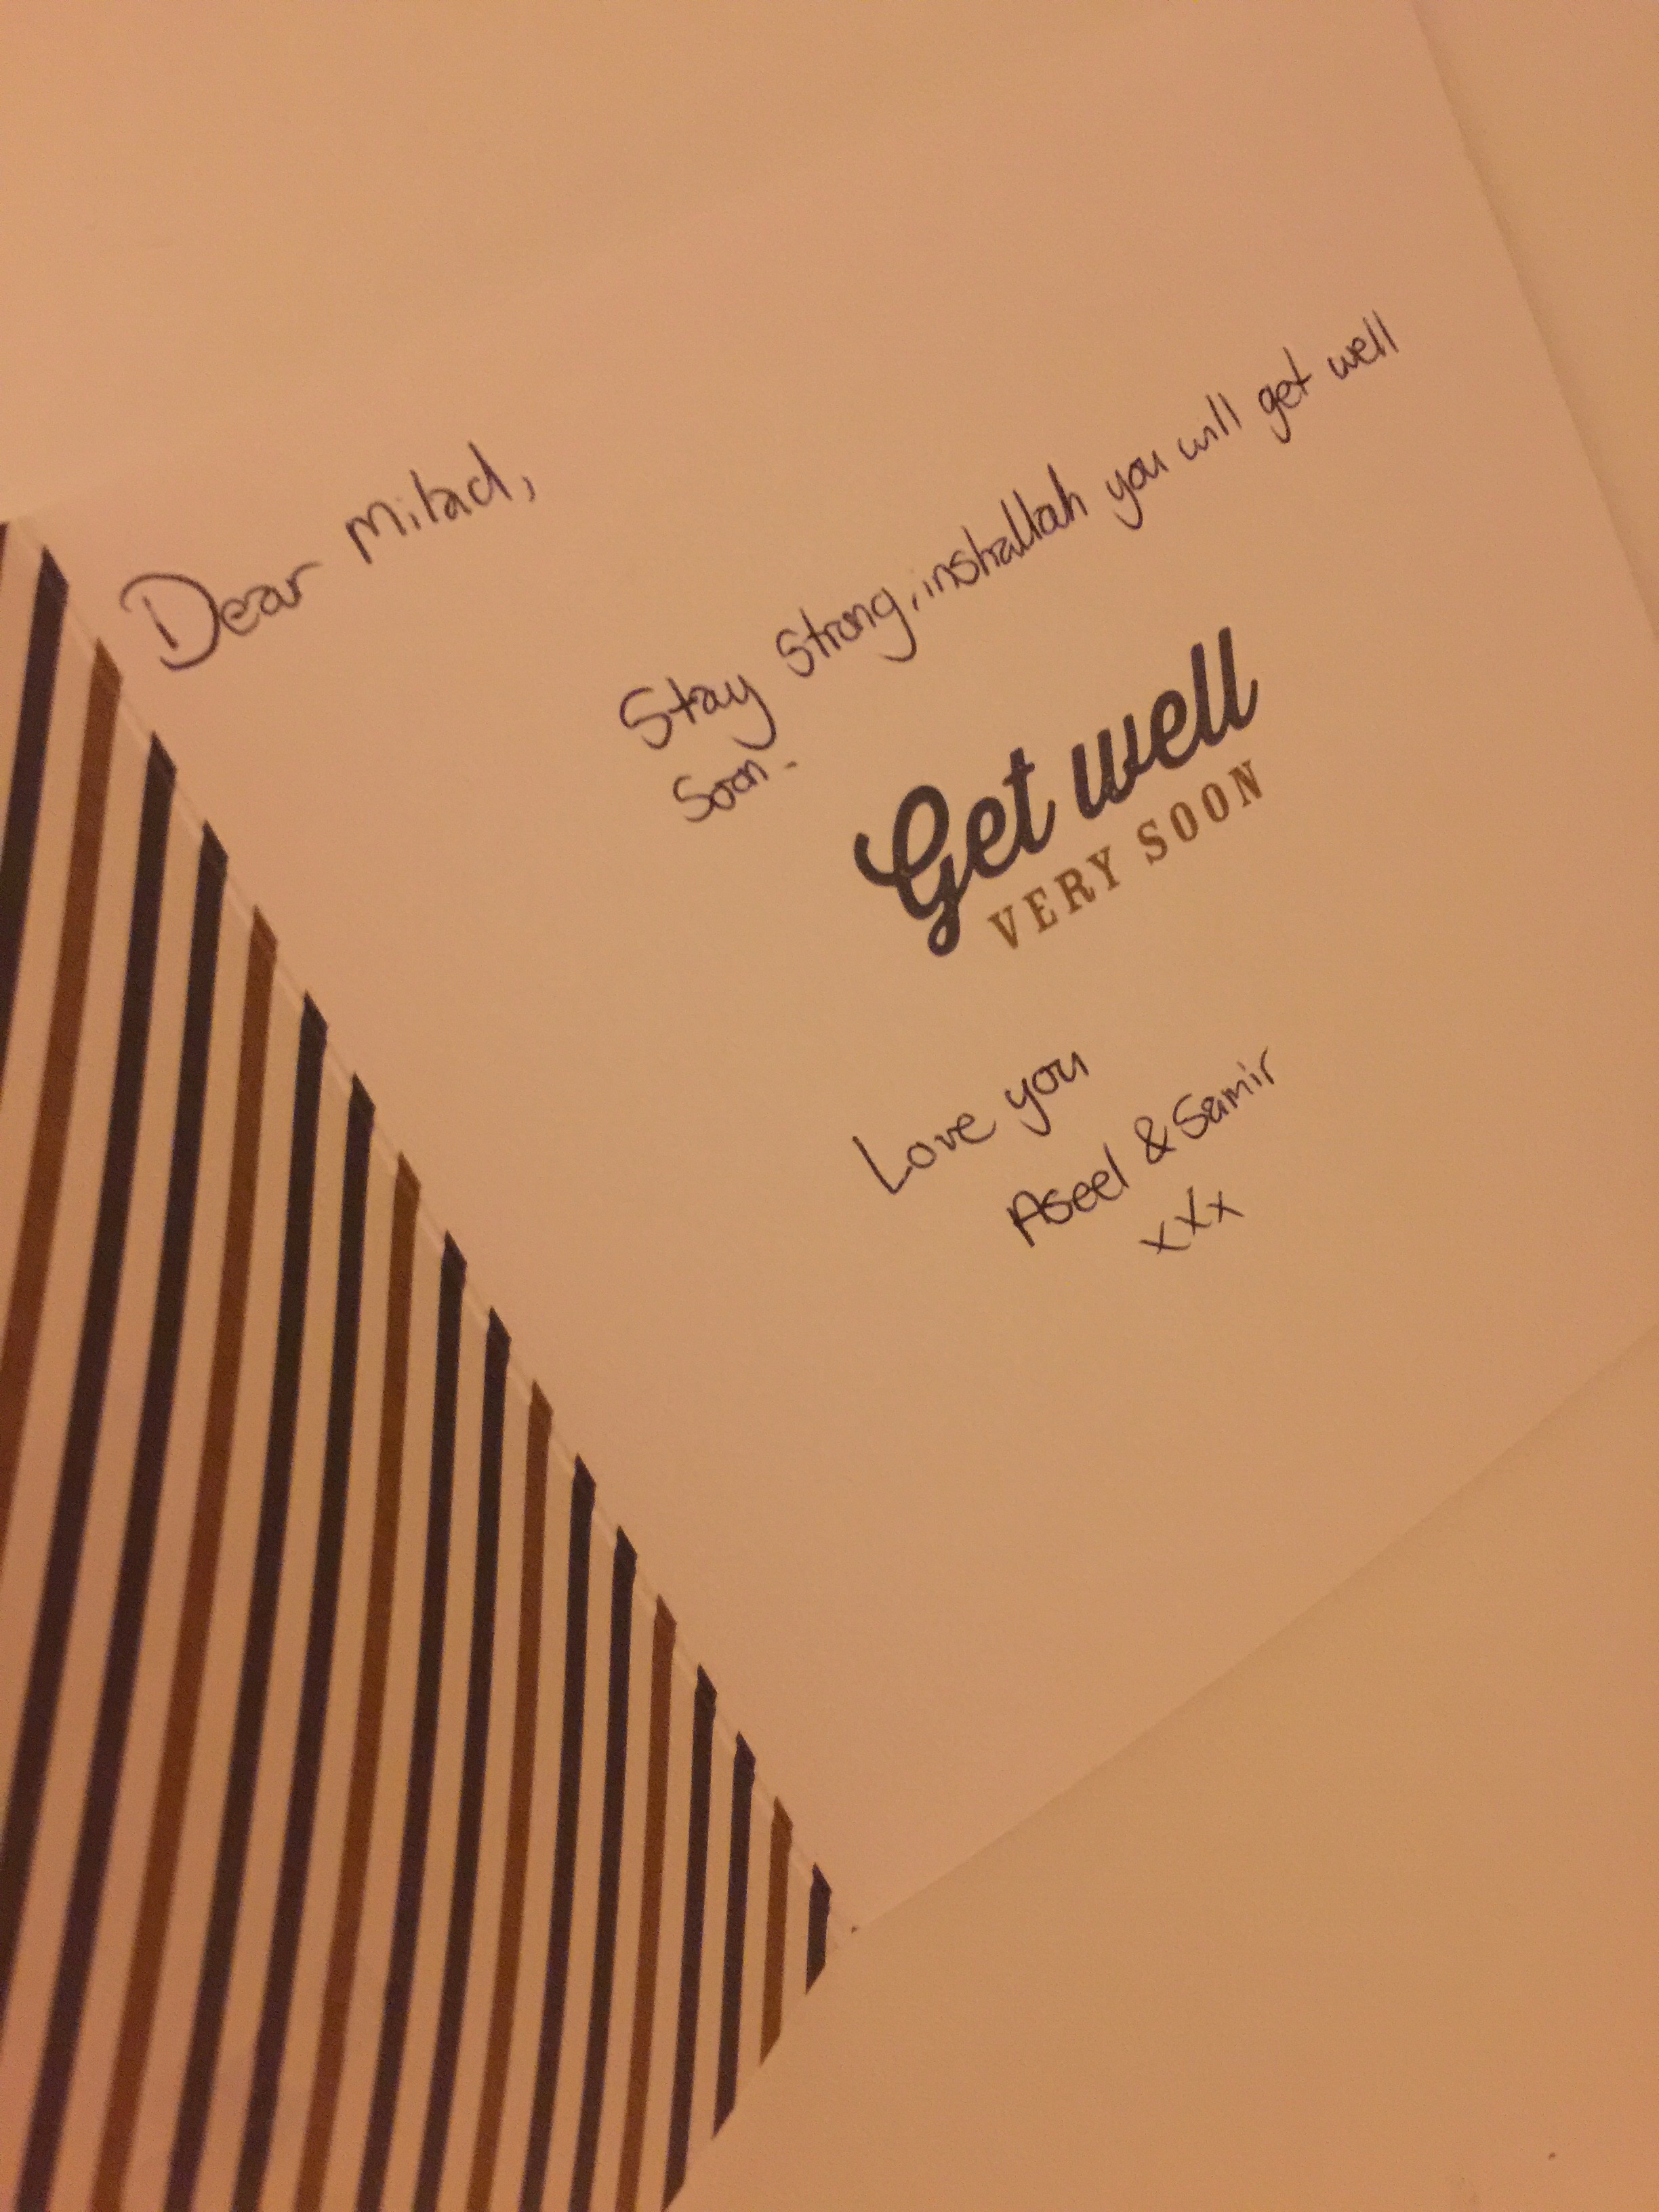 Dear Milad,
Stay strong, inshallah you will get well
soon.
Get well
VERY SOON
Love you
Aseel & Samir
xxx